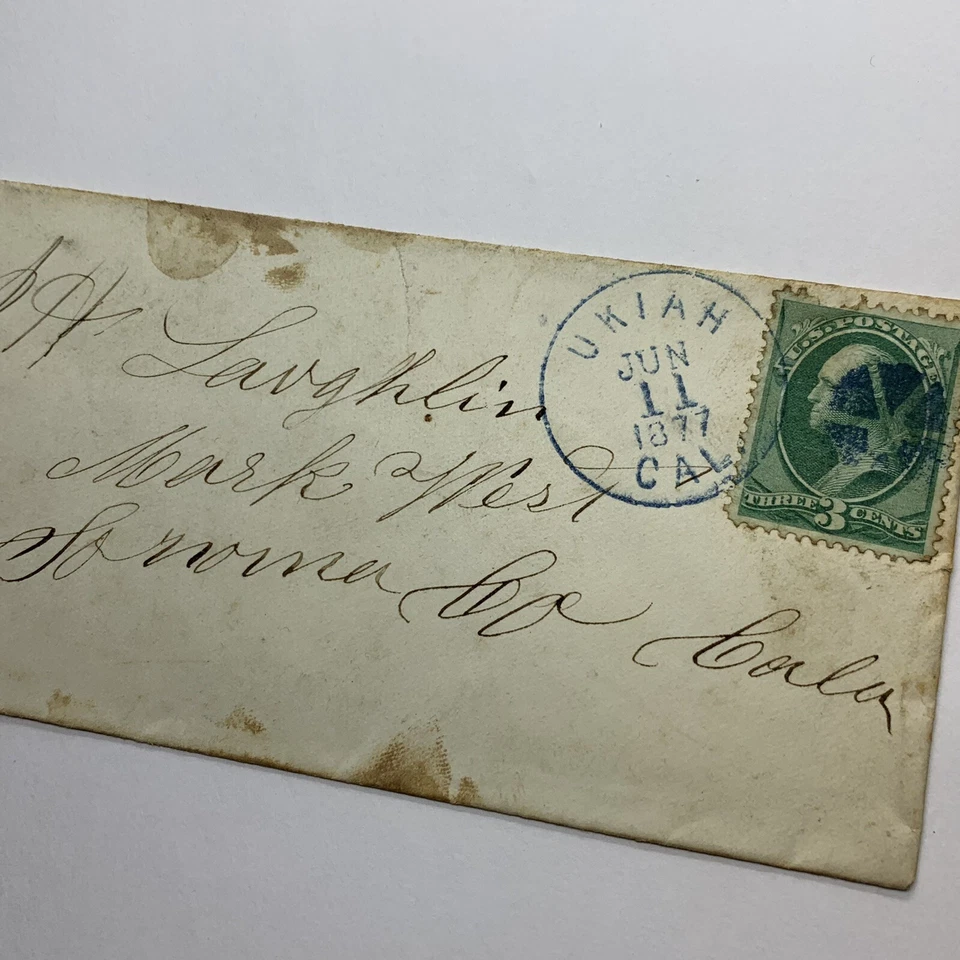 UKIAH
JUN
11
1877
CAL
U.S. POSTAGE
THREE 3 CENTS
H Laughlin
Mark West
Sonoma Co Cala